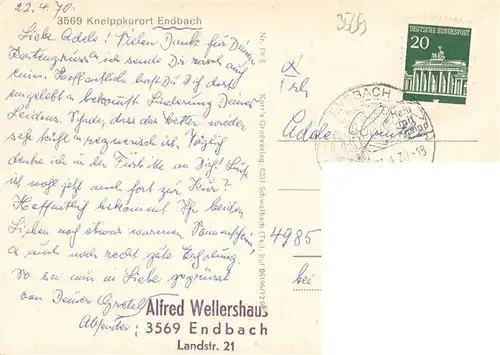 22.4.70.
3569 Kneippkurort Endbach
Liebe Adele! Vielen Dank für Deinen
Kartengruss ich sende Dir rasch auch
einen. Hoffentlich hast Du Dich dort
eingelebt u bekommst Linderung Deines
Leidens. Schade, dass das Wetter wieder
sehr kühl u regnerisch ist. Täglich
denke ich in der Fürbitte an Dich! Luise
ist wohl jetzt auch fort zur Kur?
Hoffentlich bekommt Ihr beiden
Lieben noch etwas warmen Sonnenschein,
u auch noch recht gute Erholung.
So sei nun in Liebe gegrüsst
von Deiner Gretel
Absender:
Alfred Wellershaus
3569 Endbach
Landstr. 21
Nr. En 5
Korr's Großverlag, 6231 Schwalbach (Ts.), Ruf 06196/12
3569
DEUTSCHE BUNDESPOST
20
ENDBACH
Heilt
Kneipp
-18
Adele
4985
bei